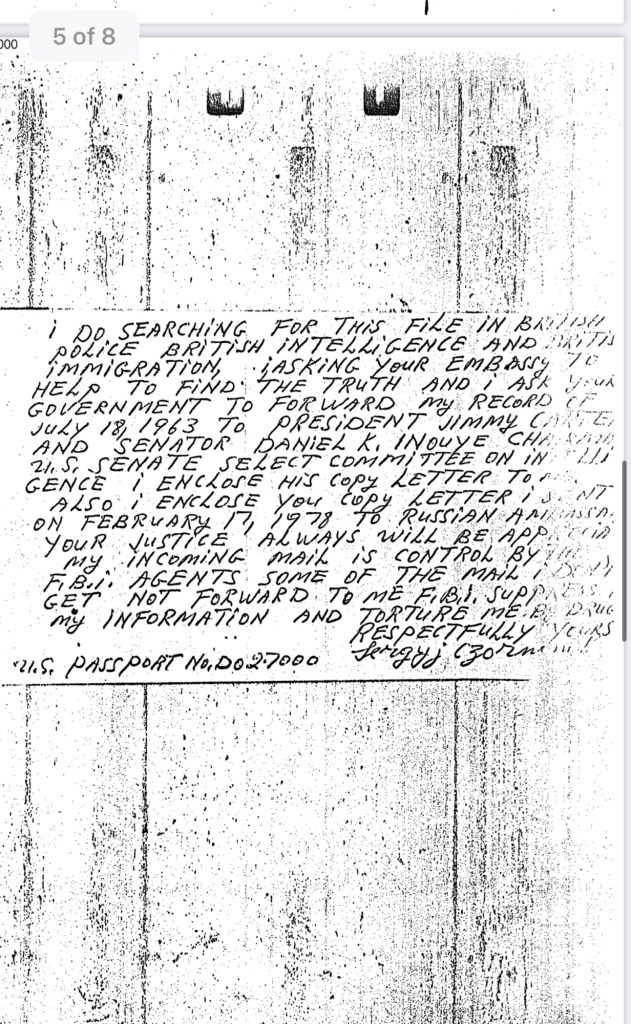 5 of 8
000
i DO SEARCHiNG FOR THiS FiLE iN BRiTiSH
POLiCE BRiTiSH iNTELLiGENCE AND BRiTiS
iMMiGRATiON, iASKiNG YOUR EMBASSY TO
HELP TO FiND THE TRUTH AND i ASK YOUR
GOVERNMENT TO FORWARD MY RECORD OF
JULY 18, 1963 TO PRESiDENT JiMMY CARTE
AND SENATOR DANiEL K. iNOUYE CHA
U.S. SENATE SELECT COMMiTTEE ON iN LLi
GENCE i ENCLOSE HiS COPY LETTER TO
ALSO i ENCLOSE YOU COPY LETTER i S NT
ON FEBRUARY 17, 1978 TO RUSSiAN AM ASSA
YOUR JUSTiCE ALWAYS WiLL BE APP CiA
MY iNCOMiNG MAiL iS CONTROL BY THE
F.B.i. AGENTS SOME OF THE MAiL i
GET NOT FORWARD TO ME F.B.i. SUPPRESS
MY iNFORMATiON AND TORTURE ME DRUG
RESPECTFULLY YOURS
U.S. PASSPORT No. D027000 Sergyj Czorn